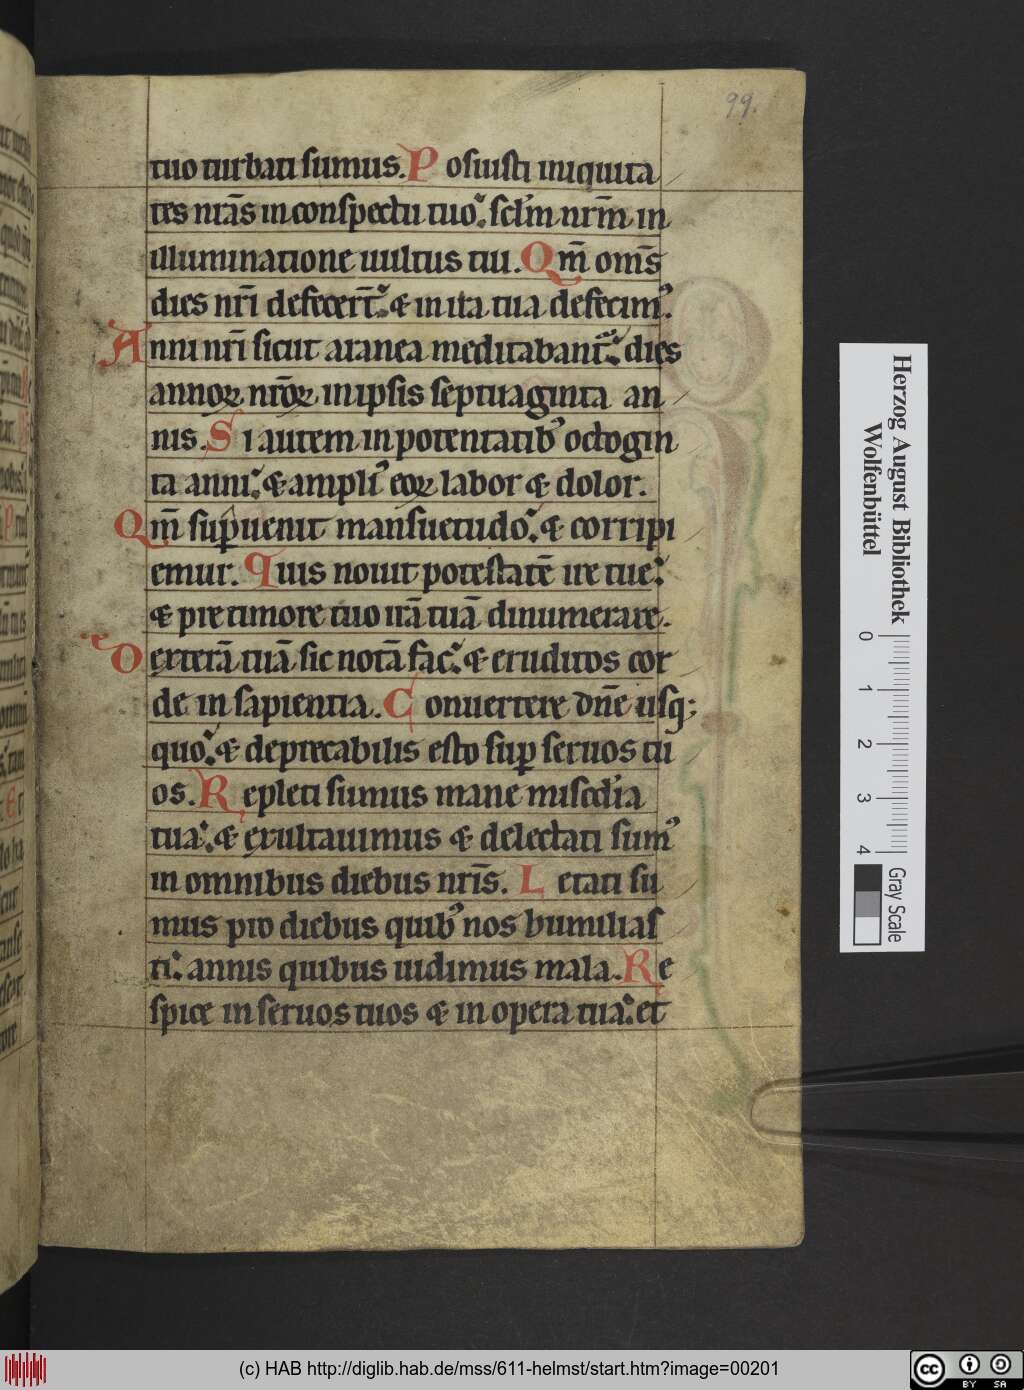 99.
tuo turbati sumus. Posuisti iniquita
tes nr̄as in conspectu tuo: sclm̄ nrm̄ in
illuminatione uultus tui. Qm̄ oms̄
dies nr̄i defecer̄t: & in ira tua defecimꝰ.
Anni nr̄i sicut aranea meditabant̄: dies
annoꝝ nr̄oꝝ in ipsis septuaginta an
nis. Si autem in potentatibꝰ octogin
ta anni: & ampliꝰ eoꝝ labor & dolor.
Qm̄ sup̄uenit mansuetudo: & corripi
emur. Quis nouit potestatē ire tue:
& pre timore tuo irā tuā dinumerare.
Dexterā tuā sic notā fac: & eruditos cor
de in sapientia. Conuertere dn̄e usq;
quo: & deprecabilis esto sup̄ seruos tu
os. Repleti sumus mane misc̄dia
tua: & exultauimus & delectati sumꝰ
in omnibus diebus nr̄is. Letati su
mus pro diebus quibꝰ nos humilias
ti: annis quibus uidimus mala. Re
spice in seruos tuos & in opera tua: et
Herzog August Bibliothek
Wolfenbüttel
0 1 2 3 4
Gray Scale
(c) HAB http://diglib.hab.de/mss/611-helmst/start.htm?image=00201
cc BY SA